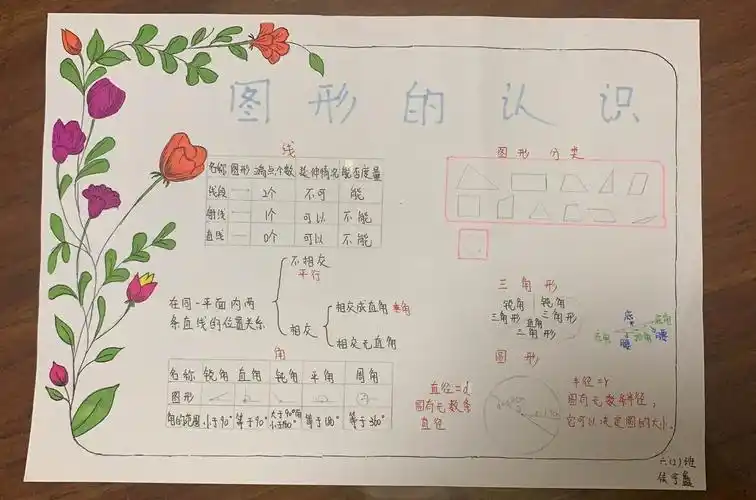 图形的认识
线
名称 图形 端点个数 延伸情况 能否度量
线段 2个 不可 能
射线 1个 可以 不能
直线 0个 可以 不能
在同一平面内两
条直线的位置关系
不相交
平行
相交
相交成直角 垂角
相交无直角
角
名称 锐角 直角 钝角 平角 周角
图形
角的范围 小于90° 等于90° 大于90°而小于180° 等于180° 等于360°
图形 分类
三角形
锐角三角形
钝角三角形
直角三角形
底
底角
腰
顶角
腰
圆形
直径=d
圆有无数条
直径
半径=r
圆有无数条半径,
它可以决定圆的大小。
六(2)班